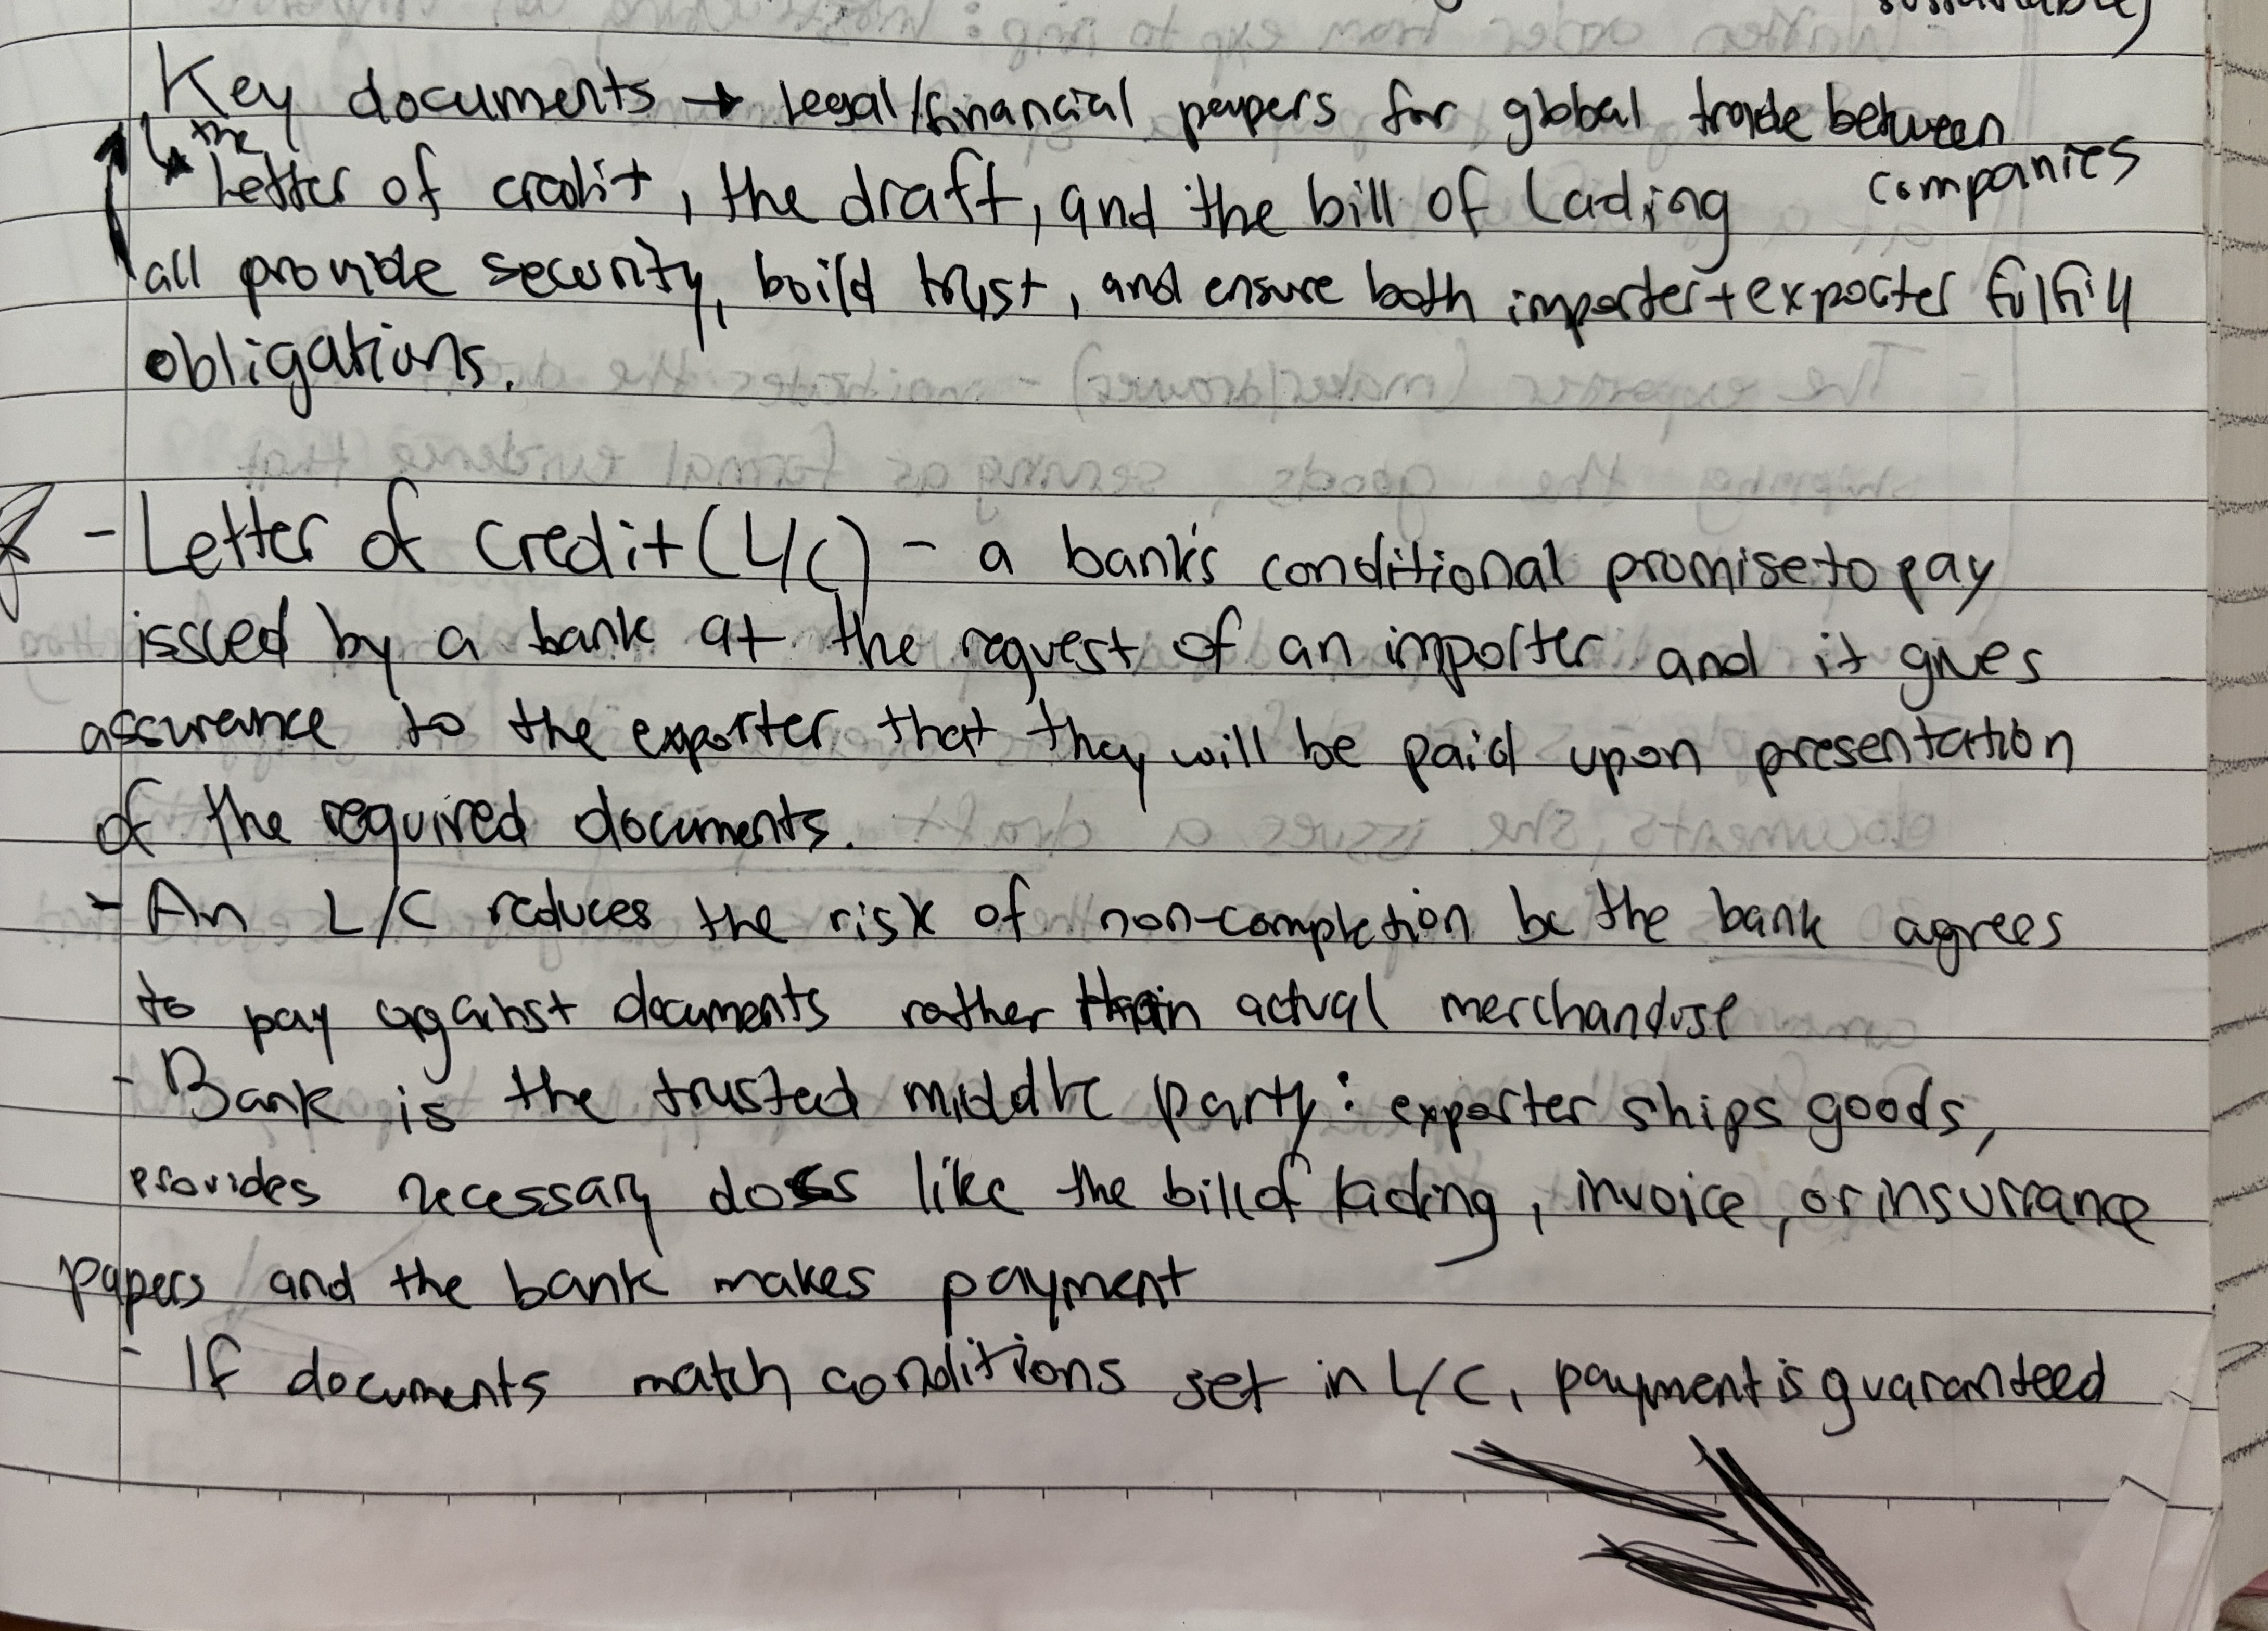 Key documents → Legal/financial papers for global trade between companies
↳ the Letter of credit, the draft, and the bill of Lading
all provide security, build trust, and ensure both importer + exporter fulfill
obligations.
- Letter of Credit (L/C) - a bank's conditional promise to pay
issued by a bank at the request of an importer and it gives
assurance to the exporter that they will be paid upon presentation
of the required documents.
- An L/C reduces the risk of non-completion bc the bank agrees
to pay against documents rather than actual merchandise
- Bank is the trusted middle party: exporter ships goods,
provides necessary docs like the bill of lading, invoice, or insurrance
papers and the bank makes payment
- If documents match conditions set in L/C, payment is guaranteed